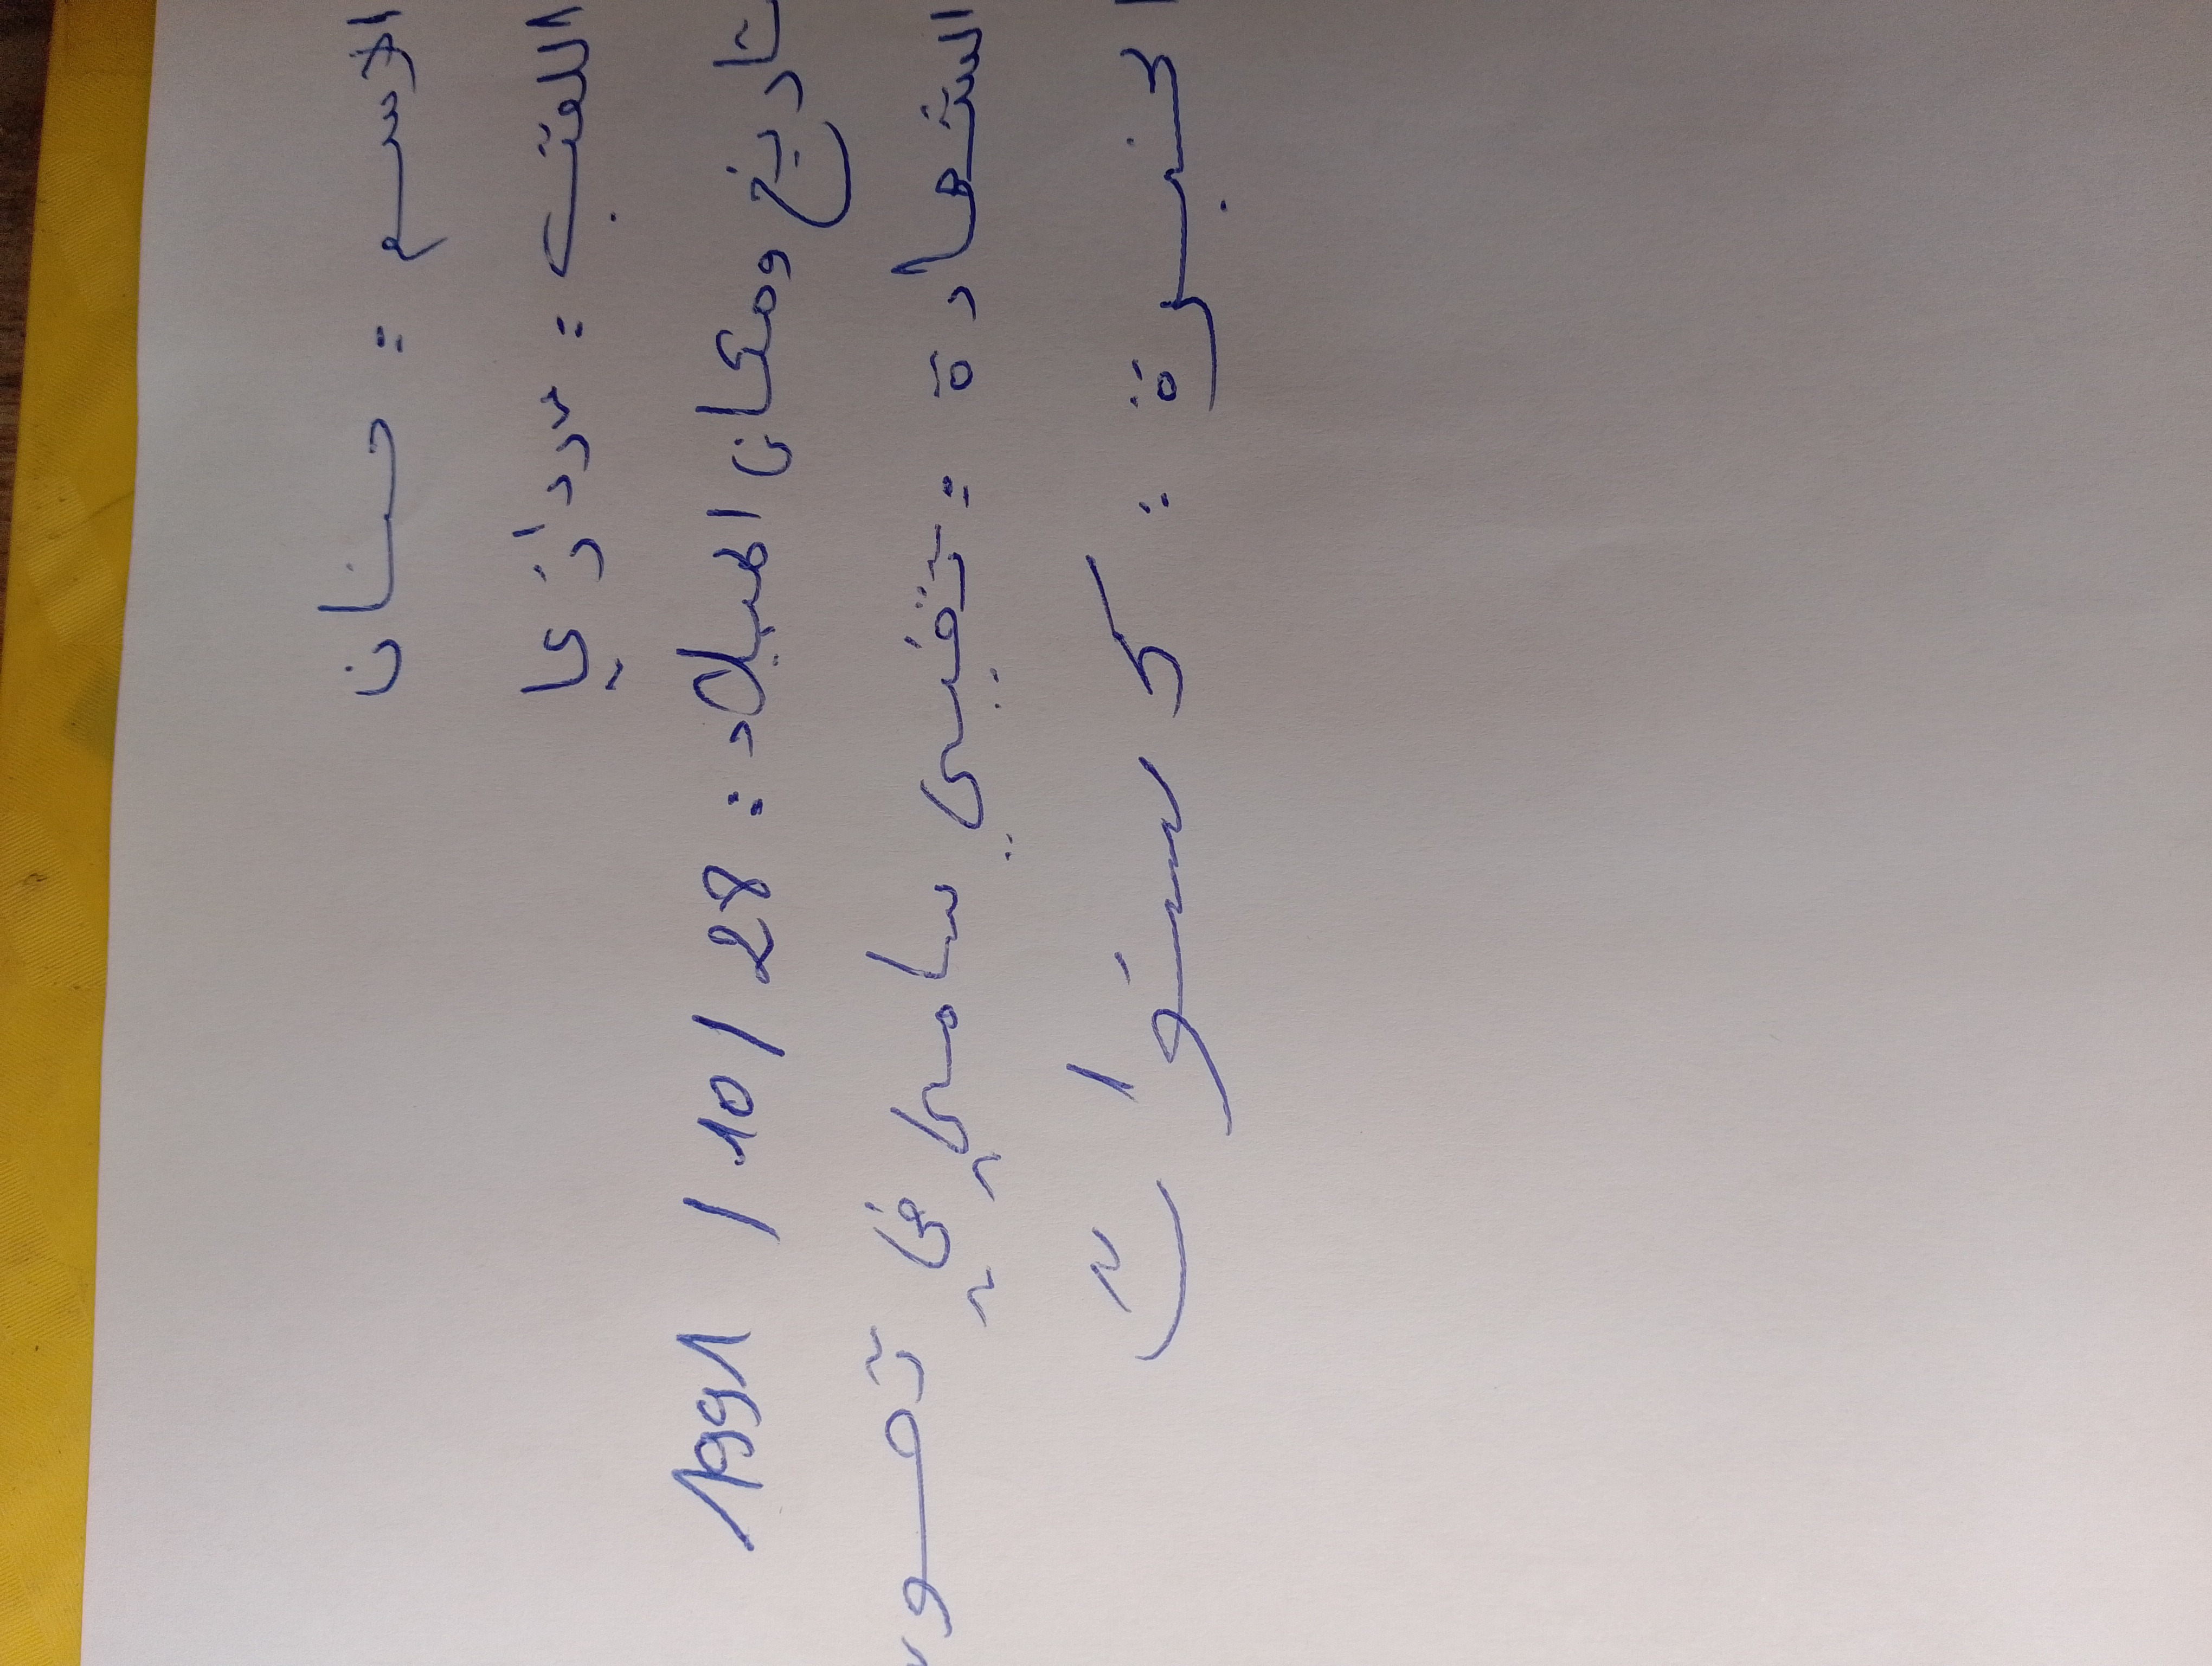 الاسم : حنان
اللقب : سردازي
تاريخ ومكان الميلاد : 28 / 10 / 1991
الشهادة : تقني سامي في تصو
الخبرة : سنوات